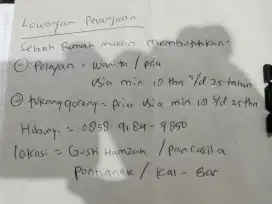 Lowongan Pekerjaan
Sebuah Rumah makan membutuhkan =
① Pelayan = wanita / pria
usia min 18 thn s/d 25 tahun
② tukang goreng = pria usia min 18 s/d 25 thn
Hubungi = 0858 9184 - 9850
lokasi = Gusti Hamzah / pancasila
pontianak / Kal - Bar